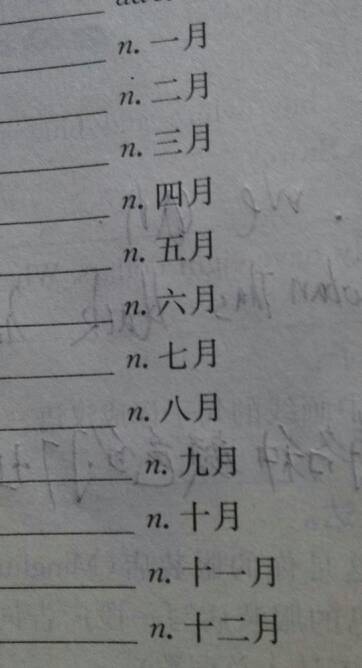 n. 一月
n. 二月
n. 三月
n. 四月
n. 五月
n. 六月
n. 七月
n. 八月
n. 九月
n. 十月
n. 十一月
n. 十二月